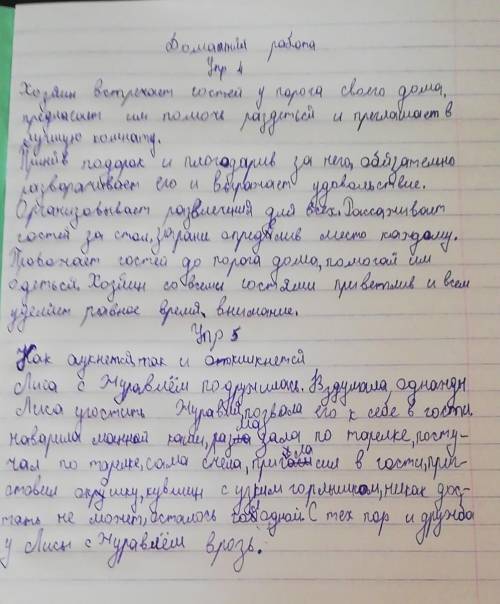 Домашняя работа
Упр 4
Хозяин встречает гостей у порога своего дома,
предлагает им помочь раздеться и приглашает в
лучшую комнату.
Приняв подарок и плогодарив за него, обязательно
разворачивает его и выражает удовольствие.
Организовывает развлечения для всех. Рассаживает
гостей за стол, зарание определив место каждому.
Провожает гостей до порога дома, помогая им
одеться. Хозяин со всеми гостями приветлив и всем
уделяет равное время, внимание.
Упр 5
Как аукнется, так и откликнется
Лиса с Журавлём подружилась. Вздумала однажды
Лиса угостить Журавля, позвала его к себе в гости,
наварила манной каши, размазала по тарелке, посту-
чал по тарелке, сама съела, пригласил в гости, приг-
отовил окрошку, кувшин с узким горлышком, никак дос-
тать не может, осталось голодной. С тех пор и дружба
у Лисы с Журавлём врозь.